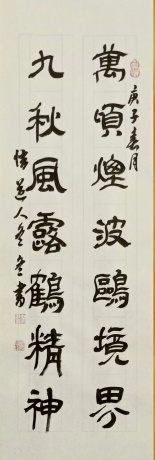 庚子春月
萬頃煙波鷗境界
九秋風露鶴精神
道人
書